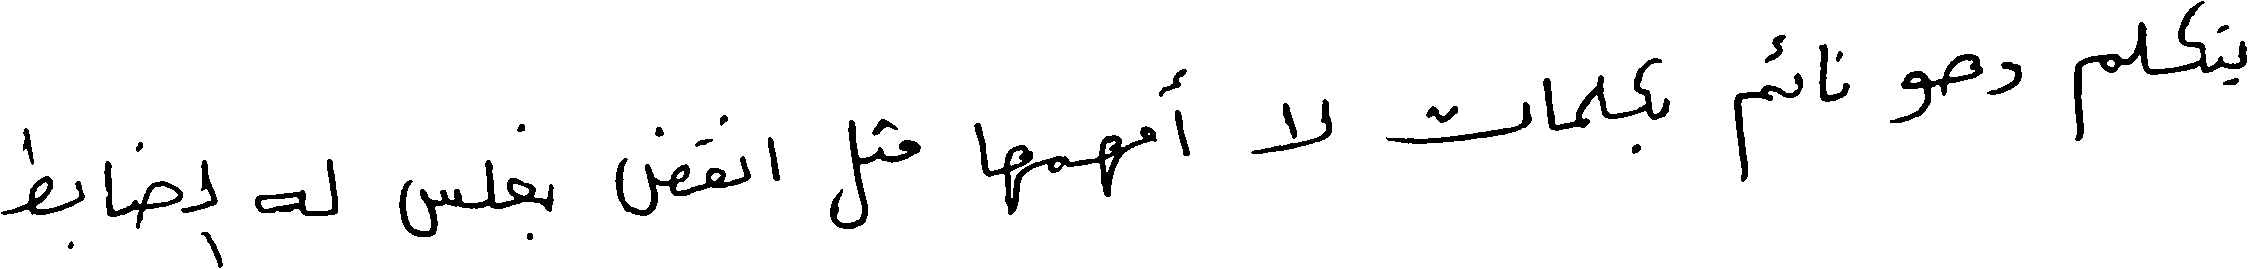 يتكلم وهو نائم بكلمات لا أفهمها مثل انقض بفلس له إضابط